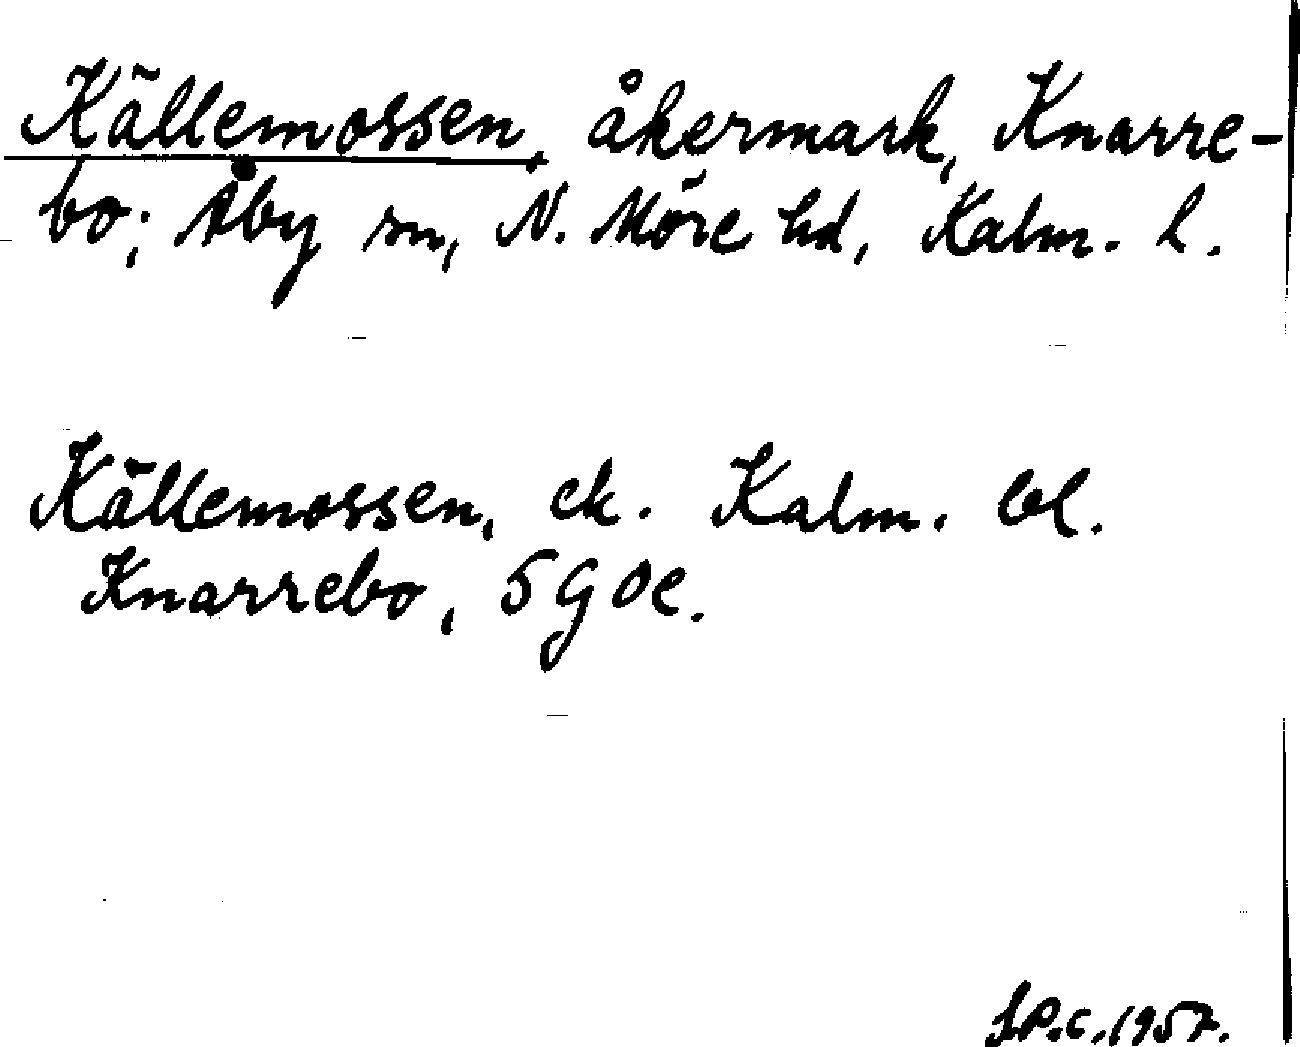 Källemossen, åkermark, Knarre-
bo; Åby sn, N. Möre hd, Kalm. l.
Källemossen, ek. Kalm. bl.
Knarrebo, 5 G Oe.
S.P.c. 1957.